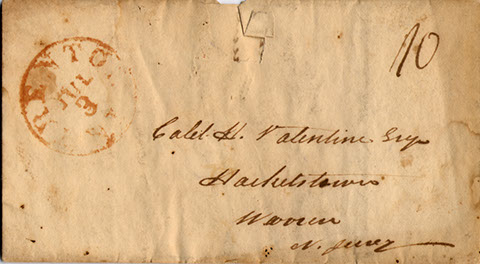 TRENTON
JUL
9
10
Calel H. Valentine Esqr
Hacketstown
Warren
N. Jersey